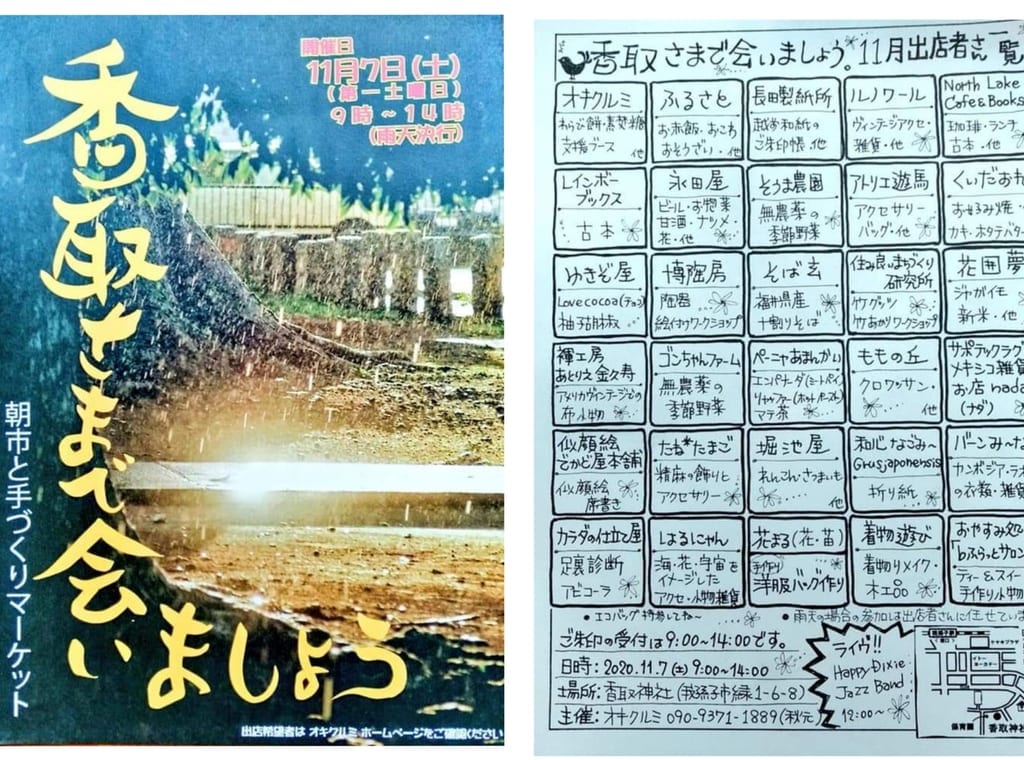 開催日
11月7日(土)
(第一土曜日)
9時~14時
(雨天決行)
香取さまで会いましょう
朝市と手づくりマーケット
出店希望者は オキクルミ ホームページをご確認ください
香取さまで会いましょう。11月出店者さん一覧
オキクルミ
わらび餅・
支援ブース 他
ふるさと
お赤飯・おこわ
おそうざい・他
長田製紙所
越前和紙の
ご朱印帳・他
ルノワール
ヴィンテージアクセ・
雑貨・他
North Lake
Cafe & Books
珈琲・ランチ
古本・他
レインボー
ブックス
古本
永田屋
ビール・お惣菜
甘酒・ナツメ・
花・他
そうま農園
無農薬の
季節野菜
アトリエ遊馬
アクセサリー
バッグ・他
くいだおれ
お好み焼・
カキ・ホタテバター
ゆきぞ屋
Lovecocoa(チョコ)
柚子胡椒
博陶房
陶器
絵付けワークショップ
そば玄
福井県産
十割りそば
住み良いまちづくり
研究所
竹グッズ
竹あかりワークショップ
花囲夢
ジャガイモ
新米・他
褌工房
あとりえ金久寿
アメリカヴィンテージetcの
布小物
ゴンちゃんファーム
無農薬の
季節野菜
ペーニャあまんかい
エンパナーダ(ミートパイ)
マテ茶
ももの丘
クロワッサン・
他
サポテックラグ
メキシコ雑貨
お店nada
(ナダ)
似顔絵
でかど屋本舗
似顔絵
席書き
たね*たまご
精麻の飾りと
アクセサリー
堀こ池屋
れんこん・さつまいも
他
和心なごみ~
Grusjaponensis
折り紙
バーンみ~な
カンボジア・ラオ
の衣類・雑貨
カラダの仕立て屋
足裏診断
アピコーラ
はるにゃん
海・花・宇宙を
イメージした
アクセ・小物雑貨
花まる(花・苗)
手作り
洋服バック作り
着物遊び
着物リメイク・
木工品
おやすみ処
「bふらっとサロン
ティー&スイー
手作り小物
・エコバッグ持参してね~
・雨天の場合の参加は出店者さんに任せていま
ご朱印の受付は9:00~14:00です。
日時: 2020.11.7(土)9:00~14:00
場所: 香取神社(我孫子市緑1-6-8)
主催: オキクルミ 090-9371-1889(秋元)
ライヴ!!
Happy Dixie
Jazz Band
12:00~
保育園
香取神社